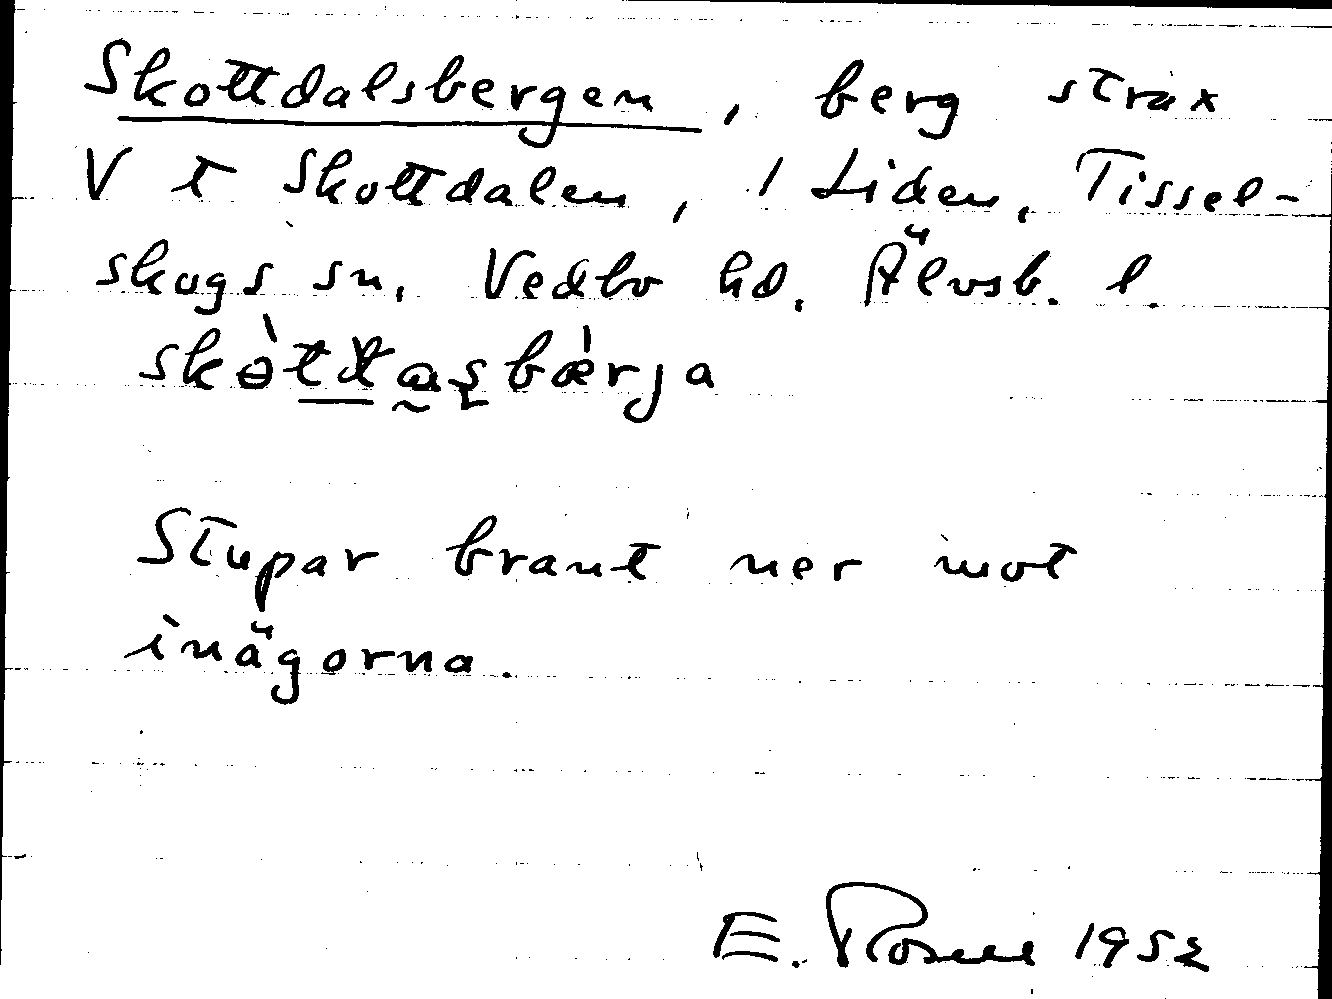 Skottdalsbergen, berg strax
V t Skottdalen, 1 Liden, Tissel-
skogs sn, Vedbo hd. Älvsb. l.
skòttdasbæ̀rja
Stupar brant ner mot
inägorna.
E. Rosell 1952